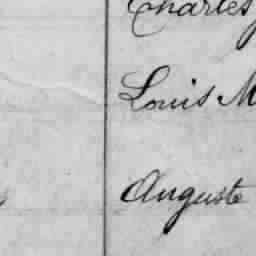 Charles
Louis M
Auguste